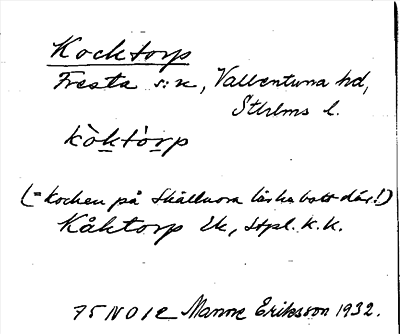 Kocktorp
Fresta s:n, Vallentuna hd,
Sthlms l.
kòktòrp
(= kocken på Skållnora lär ha bott där!)
Kåktorp Ek, stpl. k.k.
75 NO 1e Manne Eriksson 1932.